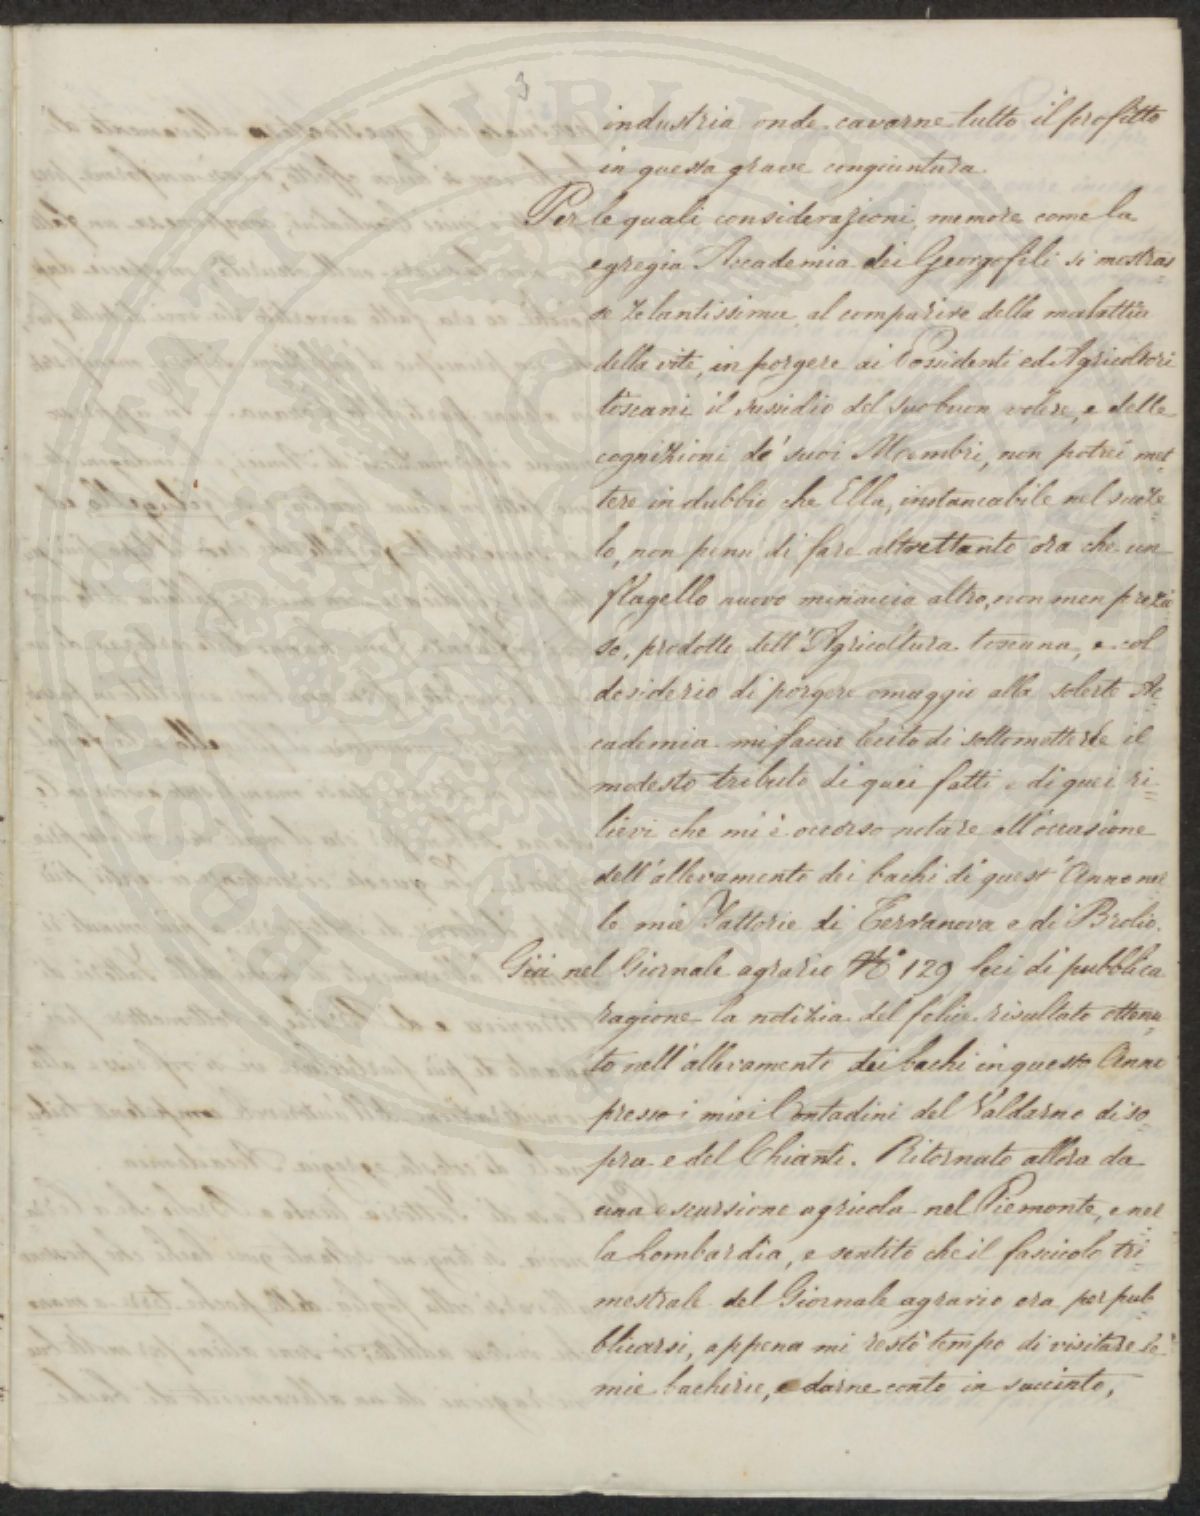 3
industria onde cavarne tutto il profitto
in questa grave congiuntura.
Per le quali considerazioni, memore come la
egregia Accademia dei Georgofili si mostras=
se zelantissima, al comparire della malattia
della vite, in porgere ai Possidenti ed Agricoltori
toscani il sussidio del suo buon volere, e delle
cognizioni de' suoi Membri, non potrei met=
tere in dubbio che Ella, instancabile nel suo ze=
lo, non pensi di fare altrettanto ora che un
flagello nuovo minaccia altro, non men prezio
so, prodotto dell'Agricoltura toscana, e col
desiderio di porgere omaggio alla solerte Ac
cademia mi faccio lecito di sottometterle il
modesto tributo di quei fatti e di quei ri=
lievi che mi è occorso notare all'occasione
dell'allevamento dei bachi di quest'Anno nel
le mie Fattorie di Terranova e di Brolio.
Già nel Giornale agrario N° 129 feci di pubblica
ragione la notizia del felice risultato ottenu=
to nell'allevamento dei bachi in questo Anno
presso i miei Contadini del Valdarno di so=
pra e del Chianti. Ritornato allora da
una escursione agricola nel Piemonte, e nel
la Lombardia, e sentito che il fascicolo tri=
mestrale del Giornale agrario era per pub=
blicarsi, appena mi restò tempo di visitare le
mie bacherie, e darne conto in succinto,